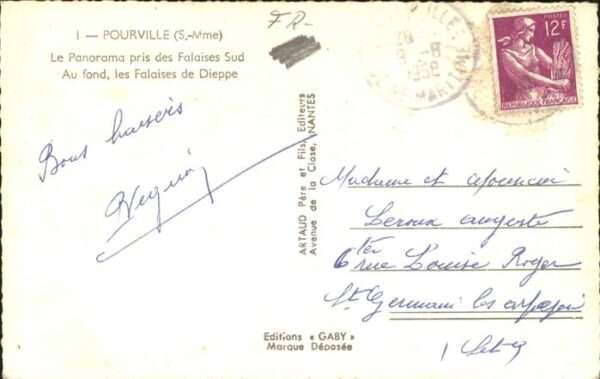 1 — POURVILLE (S.-Mme)
Le Panorama pris des Falaises Sud
Au fond, les Falaises de Dieppe
FR-
12F
REPUBLIQUE FRANÇAISE
Bons baisers
ARTAUD Père et Fils, Editeurs
Avenue de la Close, NANTES
Madame et
Leroux auguste
6 ter rue Louise Roger
St Germain les arpajon
Editions « GABY »
Marque Déposée